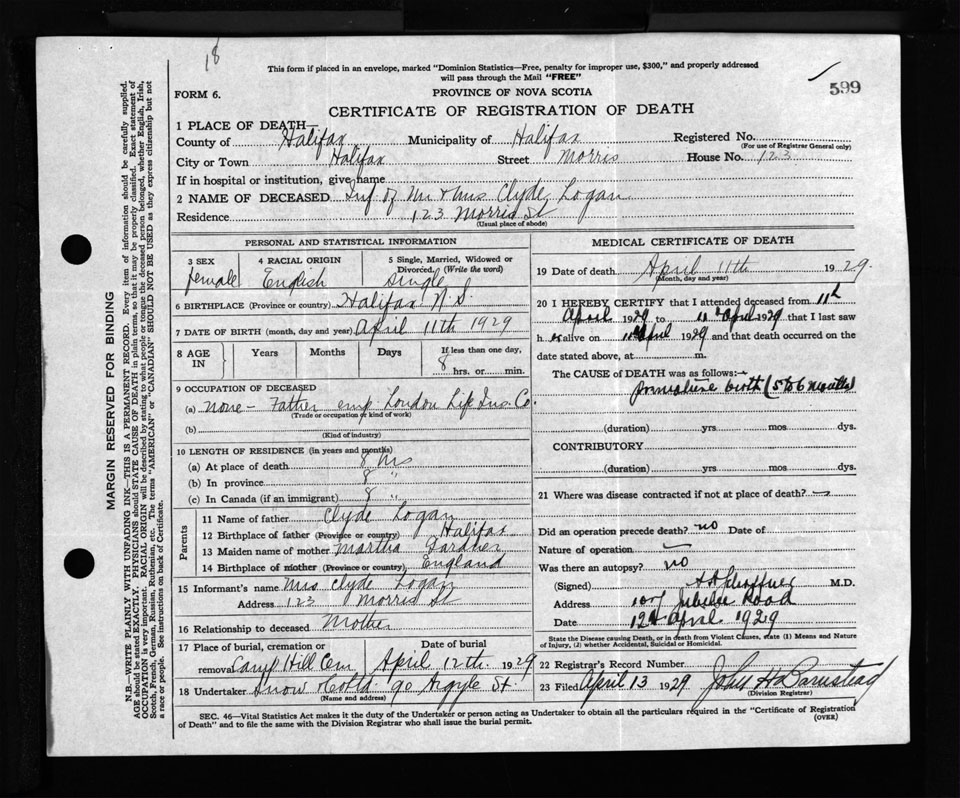 18
This form if placed in an envelope, marked "Dominion Statistics—Free, penalty for improper use, $300," and properly addressed
will pass through the Mail "FREE"
599
FORM 6.
PROVINCE OF NOVA SCOTIA
CERTIFICATE OF REGISTRATION OF DEATH
1 PLACE OF DEATH—
County of Halifax Municipality of Halifax Registered No.
(For use of Registrar General only)
City or Town Halifax Street Morris House No. 123
If in hospital or institution, give name
2 NAME OF DECEASED Inf of Mr & Mrs Clyde Logan
Residence 123 Morris St
(Usual place of abode)
PERSONAL AND STATISTICAL INFORMATION
3 SEX 4 RACIAL ORIGIN 5 Single, Married, Widowed or
Divorced. (Write the word)
female English Single
6 BIRTHPLACE (Province or country) Halifax N.S.
7 DATE OF BIRTH (month, day and year) April 11th 1929
8 AGE IN Years Months Days If less than one day,
8 hrs. or min.
9 OCCUPATION OF DECEASED
(a) none - Father emp London Life Ins. Co.
(Trade or occupation or kind of work)
(b)
(Kind of industry)
10 LENGTH OF RESIDENCE (in years and months)
(a) At place of death 8 hrs
(b) In province 8 "
(c) In Canada (if an immigrant) 8 "
Parents
11 Name of father Clyde Logan
12 Birthplace of father (Province or country) Halifax
13 Maiden name of mother Martha Gardner
14 Birthplace of mother (Province or country) England
15 Informant's name Mrs Clyde Logan
Address 123 Morris St
16 Relationship to deceased Mother
17 Place of burial, cremation or Date of burial
removal Camp Hill Cem April 12th 1929
18 Undertaker Snow & Co Ltd 90 Argyle St
(Name and address)
MEDICAL CERTIFICATE OF DEATH
19 Date of death April 11th 1929.
(Month, day and year)
20 I HEREBY CERTIFY that I attended deceased from 11th
April 1929 to 11 April 1929 that I last saw
h er alive on 11 April 1929 and that death occurred on the
date stated above, at m.
The CAUSE of DEATH was as follows:—
premature birth (5 to 6 months)
(duration) yrs mos dys.
CONTRIBUTORY
(duration) yrs mos dys.
21 Where was disease contracted if not at place of death? —
Did an operation precede death? no Date of
Nature of operation —
Was there an autopsy? no
(Signed) M.D.
Address 107 Jubilee Road
Date 12th April 1929
State the Disease causing Death, or in death from Violent Causes, state (1) Means and Nature
of Injury, (2) whether Accidental, Suicidal or Homicidal.
22 Registrar's Record Number
23 Filed April 13 1929 John H Barnstead
(Division Registrar)
SEC. 46—Vital Statistics Act makes it the duty of the Undertaker or person acting as Undertaker to obtain all the particulars required in the "Certificate of Registration
of Death" and to file the same with the Division Registrar who shall issue the burial permit.
(OVER)
MARGIN RESERVED FOR BINDING
N.B.—WRITE PLAINLY WITH UNFADING INK—THIS IS A PERMANENT RECORD. Every item of information should be carefully supplied.
AGE should be stated EXACTLY. PHYSICIANS should STATE CAUSE OF DEATH in plain terms, so that it may be properly classified. Exact statement of
OCCUPATION is very important. RACIAL ORIGIN will be described by stating to what people or tongue the deceased person belonged, whether English, Irish,
Scotch, French, German, Russian, Ruthenian, etc. The terms "AMERICAN" or "CANADIAN" SHOULD NOT BE USED as they express citizenship but not
a race or people. See instructions on back of Certificate.